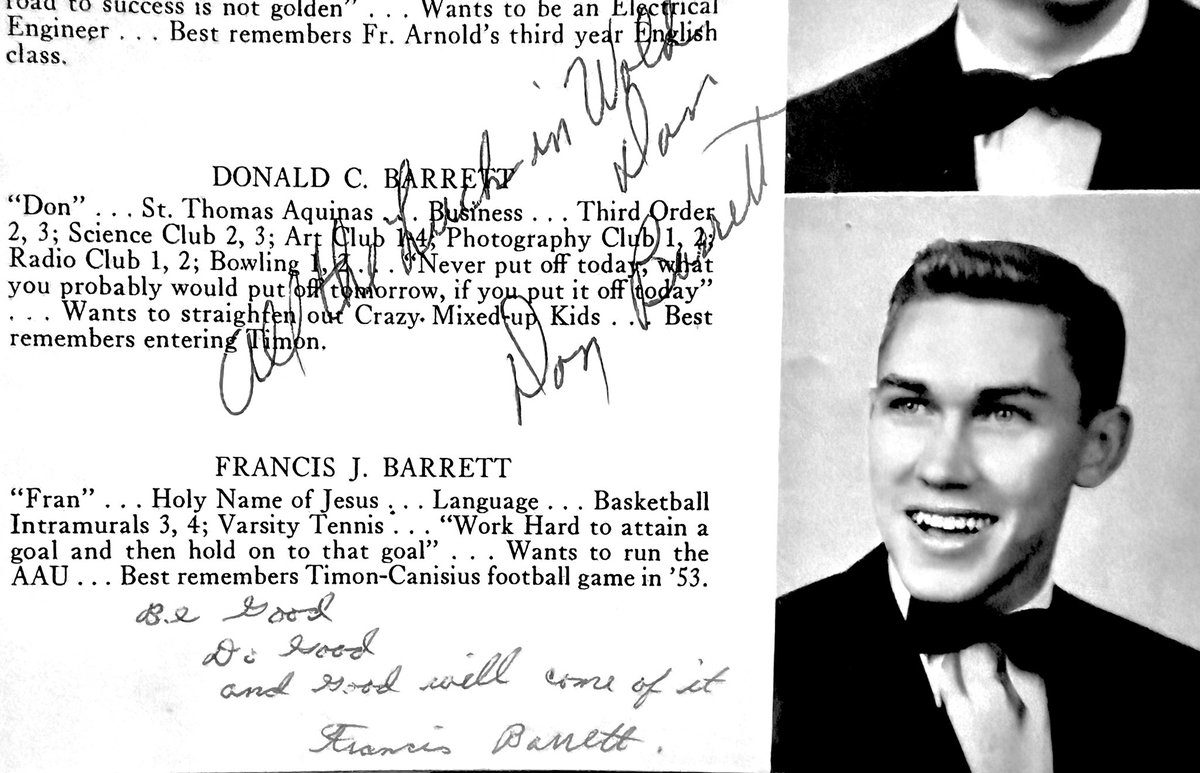 road to success is not golden" . . . Wants to be an Electrical
Engineer . . . Best remembers Fr. Arnold's third year English
class.
DONALD C. BARRETT
"Don" . . . St. Thomas Aquinas . . . Business . . . Third Order
2, 3; Science Club 2, 3; Art Club 1-4; Photography Club 1, 2;
Radio Club 1, 2; Bowling 1, 2 . . . "Never put off today, what
you probably would put off tomorrow, if you put it off today"
. . . Wants to straighten out Crazy Mixed-up Kids . . . Best
remembers entering Timon.
All the Luck in
Dan
Don Barrett
FRANCIS J. BARRETT
"Fran" . . . Holy Name of Jesus . . . Language . . . Basketball
Intramurals 3, 4; Varsity Tennis . . . "Work Hard to attain a
goal and then hold on to that goal" . . . Wants to run the
AAU . . . Best remembers Timon-Canisius football game in '53.
Be Good
Do Good
and Good will come of it
Francis Barrett.